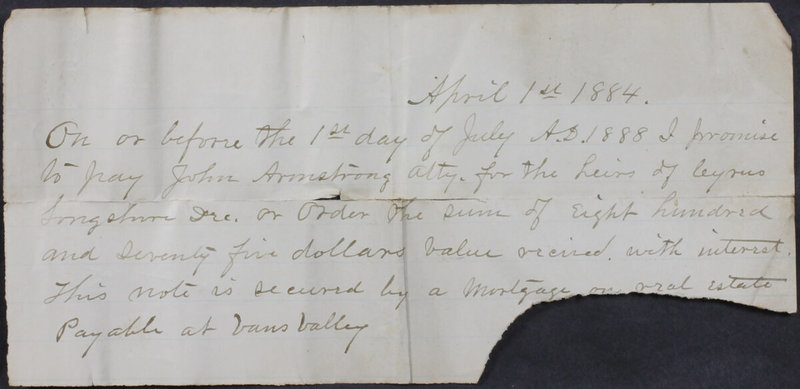 April 1st 1884.
On or before the 1st day of July A.D. 1888 I promise
to pay John Armstrong atty. for the heirs of Cyrus
Longshore Dec. or order the sum of Eight hundred
and seventy five dollars value recived. with interest.
This note is secured by a Mortgage on real estate
Payable at Vans Valley